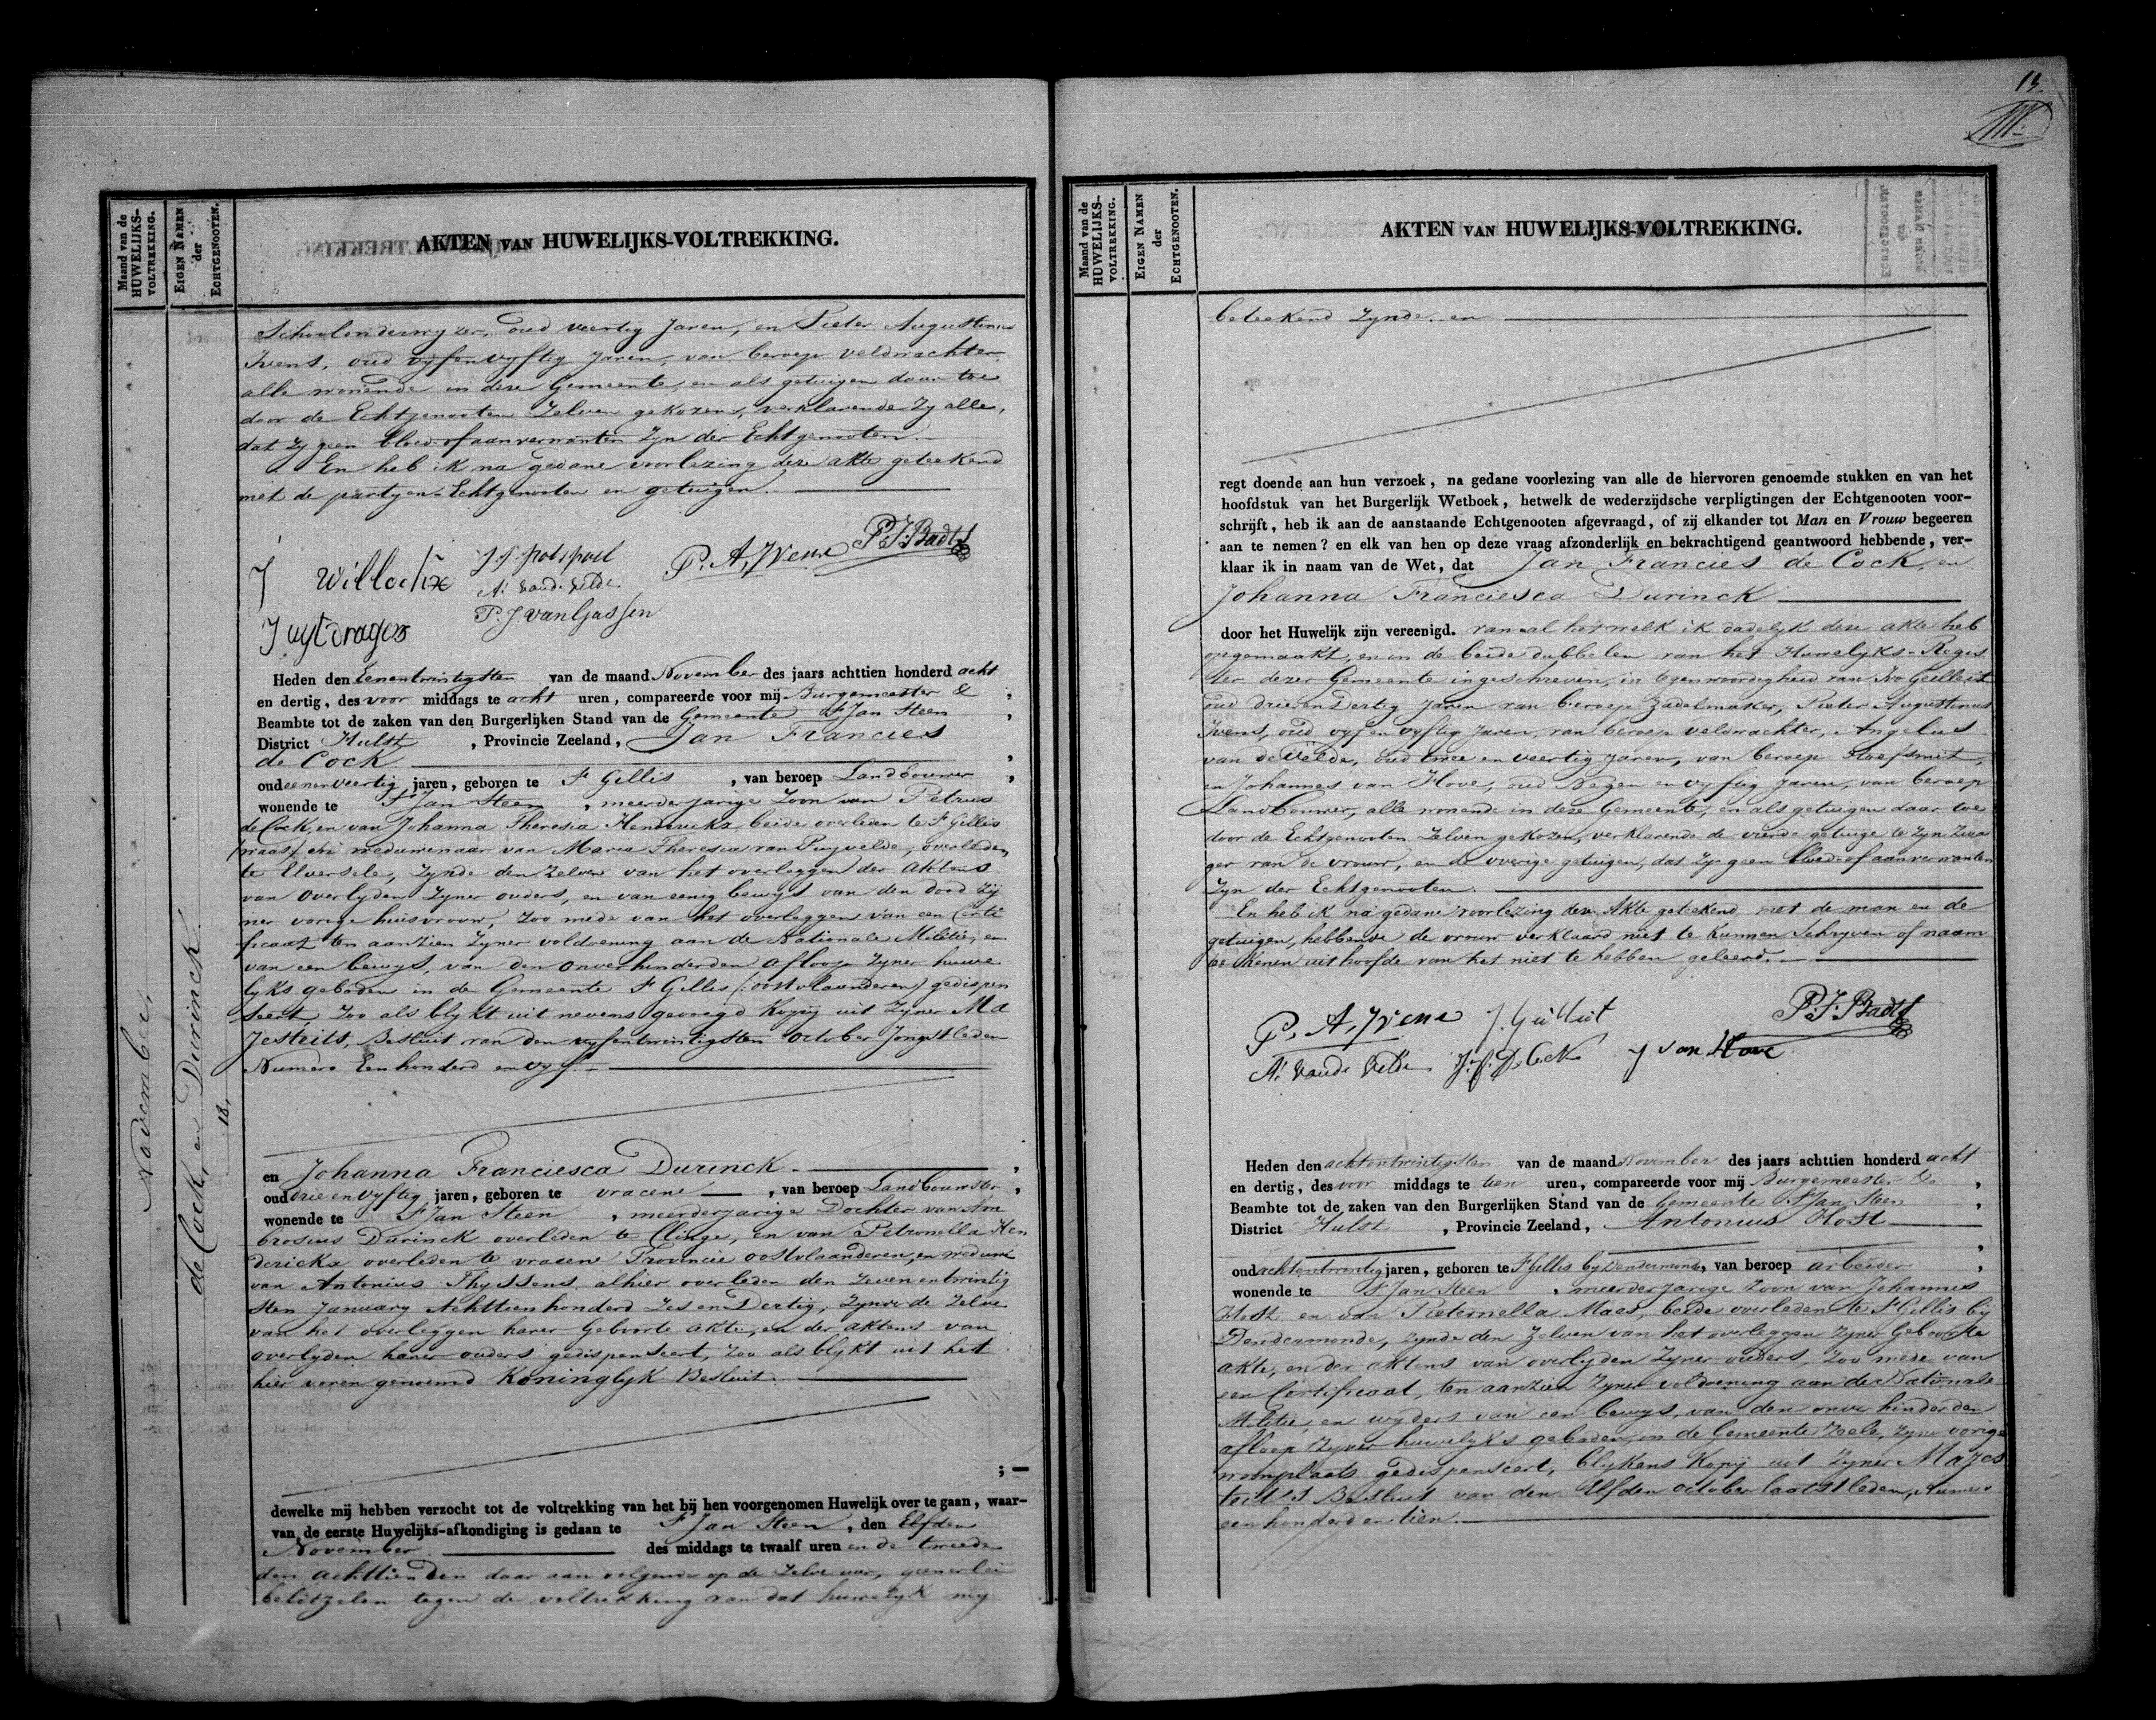 Maand van de
HUWELIJKS-
VOLTREKKING.
EIGEN NAMEN
der
ECHTGENOOTEN.
AKTEN VAN HUWELIJKS-VOLTREKKING.
Schoolonderwyzer, oud veertig Jaren, en Pieter Augustinus
Ivens, oud vyfenvyftig jaren, van beroep veldwachter
alle wonende in deze Gemeente, en als getuigen daar toe
door de Echtgenooten Zelven gekozen, verklarende Zy alle,
dat Zy geen bloed-of aanverwanten Zyn der Echtgenooten.
En heb ik na gedane voorlezing deze akte geteekend
met de partyen-Echtgenooten en getuigen.
J Willockx
A. vande Velde
P. A. Ivens
P. J. Badts
P. J. Van Gassen
J uytdrages
November
de Cock, en Durinck.
18.
Heden den Eenentwintigsten van de maand November des jaars achttien honderd acht
en dertig, des voor middags te acht uren, compareerde voor mij Burgemeester &
Beambte tot de zaken van den Burgerlijken Stand van de Gemeente St Jan Steen,
District Hulst, Provincie Zeeland, Jan Francies
de Cock.
oud eenenveertig jaren, geboren te St Gillis, van beroep Landbouwer,
wonende te St Jan Steen, meerderjarige Zoon van Petrus
de Cock, en van Johanna Theresia Henderickx, beide overleden te St Gillis
(waas) en weduwenaar van Maria Theresia van Puyvelde, overleden
te Elversele, Zynde den Zelven van het overleggen der aktens
van overlyden Zyner ouders, en van eenig bewys van den dood Zy
ner vorige huisvrouw, Zoo mede van het overleggen van een Certi
ficaat ten aanzien Zyner voldoening aan de Nationale Militie, en
van een bewys, van den onverhinderden afloop Zyner huwe
lyks geboden in de Gemeente St Gillis (: oostvlaanderen) gedispen
seert Zoo als blykt uit nevens gevoegd Kopij uit Zyner Ma
Jesteits, Besluit van den vyfentwintigsten October Jongstleden
Numero Een honderd en vyf.
en Johanna Franciesca Durinck.
oud drie en vyftig jaren, geboren te vracene, van beroep Landbouwster,
wonende te St Jan Steen, meerderjarige Dochter van Am
brosius Durinck overleden te Clinge, en van Petronella Hen
derickx overleden te vrasene Provincie oostvlaanderen, en weduwe
van Antonius Thyssens alhier overleden den Zevenentwintig
sten January Achttienhonderd Zes en Dertig, Zynde de Zelve
van het overleggen harer Geboorte akte, en der aktens van
overlyden harer ouders gedispenseert, Zoo als blykt uit het
hier voren genoemd Koninglyk Besluit.
; —
dewelke mij hebben verzocht tot de voltrekking van het bij hen voorgenomen Huwelijk over te gaan, waar-
van de eerste Huwelijks-afkondiging is gedaan te St Jan Steen, den Elfden
November des middags te twaalf uren en de tweede
den achttienden daar aan volgende op de Zelve uur, geenerlei
beletzelen tegen de voltrekking van dat huwelyk my
13.
Maand van de
HUWELIJKS-
VOLTREKKING.
EIGEN NAMEN
der
ECHTGENOOTEN.
AKTEN VAN HUWELIJKS-VOLTREKKING.
beteekend Zynde en
regt doende aan hun verzoek, na gedane voorlezing van alle de hiervoren genoemde stukken en van het
hoofdstuk van het Burgerlijk Wetboek, hetwelk de wederzijdsche verpligtingen der Echtgenooten voor-
schrijft, heb ik aan de aanstaande Echtgenooten afgevraagd, of zij elkander tot Man en Vrouw begeeren
aan te nemen? en elk van hen op deze vraag afzonderlijk en bekrachtigend geantwoord hebbende, ver-
klaar ik in naam van de Wet, dat Jan Francies de Cock, en
Johanna Franciesca Durinck
door het Huwelijk zijn vereenigd. van al hetwelk ik dadelyk deze akte heb
opgemaakt, en in de beide dubbelen van het Huwelyks-Regis
ter dezer Gemeente ingeschreven, in tegenwoordigheid van Ivo Geilleit
oud drie en Dertig Jaren van beroep Zadelmaker, Pieter Augustinus
Ivens, oud vyfenvyftig Jaren, van beroep veldwachter, Angelus
van de Velde, oud twee en veertig jaren, van beroep Hoefsmit,
en Johannes van Hove, oud Negen en vyftig Jaren, van beroep
Landbouwer, alle wonende in deze Gemeente, en als getuigen daar toe
door de Echtgenooten Zelven gekozen, verklarende de vierde getuige te Zyn Zwa
ger van de vrouw, en de overige getuigen, dat Zy geen bloed-of aanverwanten
Zyn der Echtgenooten.
En heb ik na gedane voorlezing deze Akte geteekend met de man en de
getuigen, hebbende de vrouw verklaard niet te kunnen Schryven of naam
teekenen uit hoofde van het niet te hebben geleerd.
P. A. Ivens
P. J. Badts
A. vande Velde
J. F. De Cock
J van Hove
Heden den achtentwintigsten van de maand November des jaars achttien honderd acht
en dertig, des voor middags te tien uren, compareerde voor mij Burgemeester &
Beambte tot de zaken van den Burgerlijken Stand van de Gemeente St Jan Steen,
District Hulst, Provincie Zeeland, Antonius Host
oud achtentwintig jaren, geboren te St Gillis by Dendermonde, van beroep arbeider,
wonende te St Jan Steen, meerderjarige Zoon van Johannes
Host en van Pieternella Maes, beide overleden te St Gillis by
Dendermonde, Zynde den Zelven van het overleggen Zyner Geboorte
akte, en der aktens van overlyden Zyner ouders, Zoo mede van
een Certificaat, ten aanzien Zyner voldoening aan de Nationale
Militie, en wyders van een bewys, van den onverhinderden
afloop Zyner huwelyks geboden in de Gemeente Zele, Zyne vorige
woonplaats gedispenseert, blykens Kopij uit Zyner Majes
teit's Besluit van den Elfden october laatstleden, Numero
een honderd en tien.